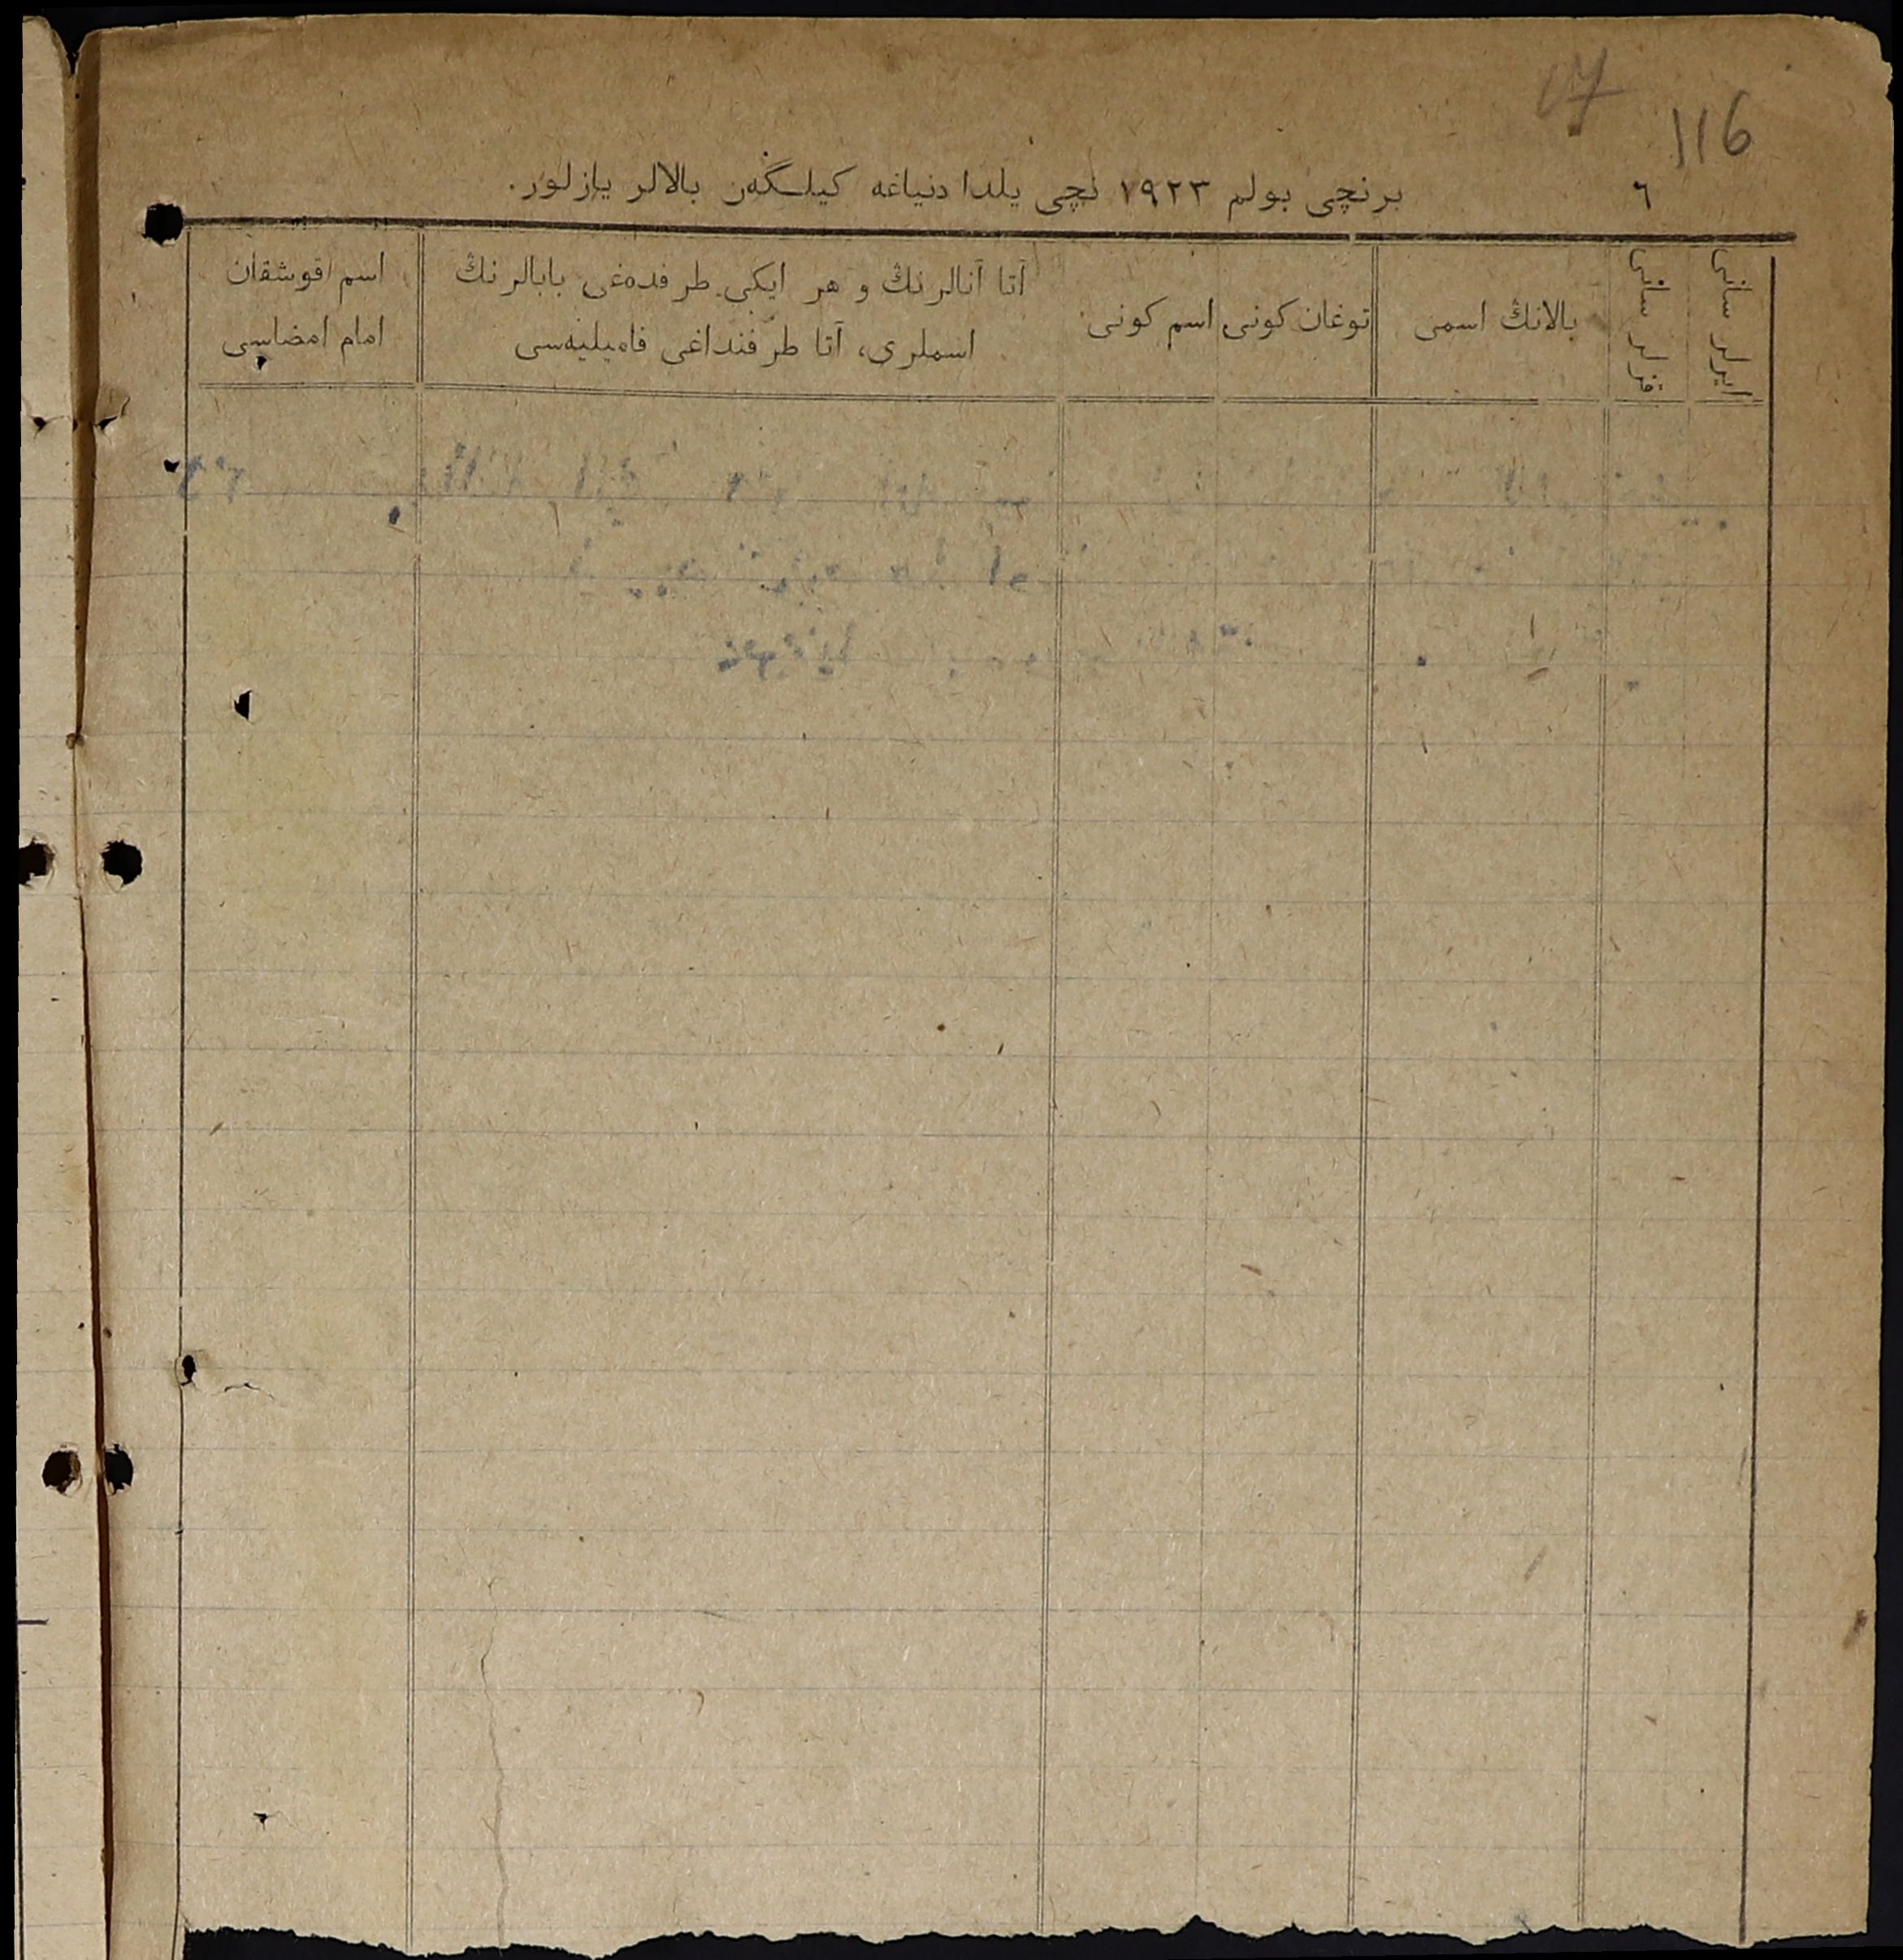 17
116
٦
برنچی بولم ١٩٢٣ نچی یلدا دنیاغه کیلگەن بالالر یازلور.
ایرلر سانی
قزلر سانی
بالانڭ اسمی
توغان کونی
اسم کونی
آتا آنالرنڭ و هر ایکی طرفدەغی بابالرنڭ
اسملری، آتا طرفنداغی فامیلیەسی
اسم قوشقان
امام امضاسی